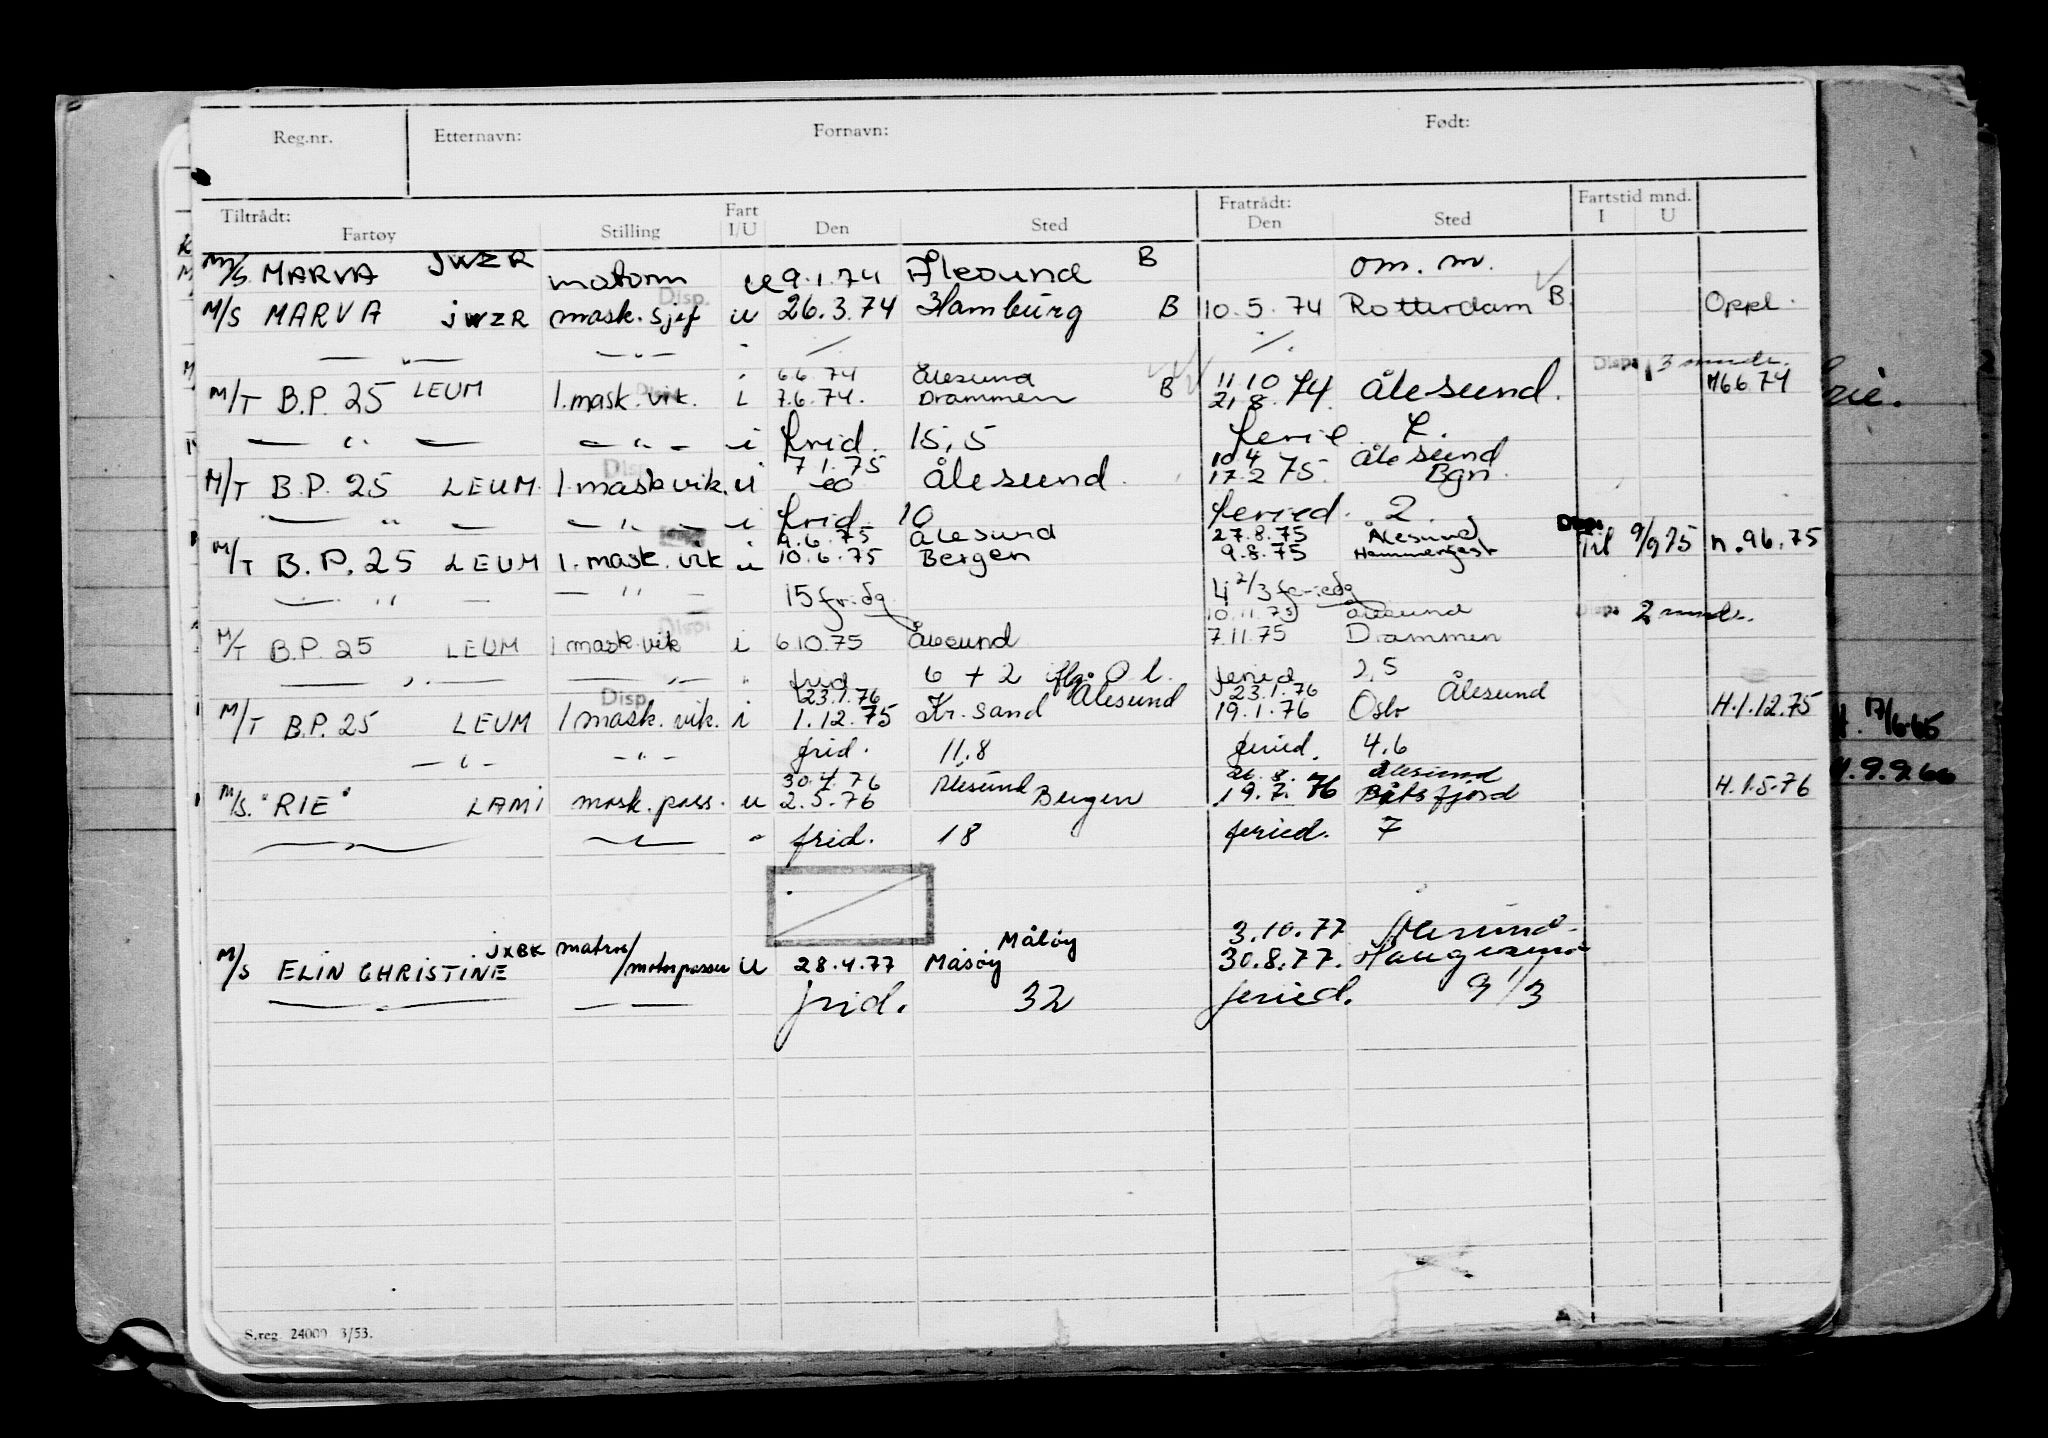 Reg.nr. Etternavn: Fornavn: Født:
Tiltrådt: Fart Fratrådt: Fartstid mnd.
Fartøy Stilling I/U Den Sted Den Sted I U
M/S MARVA JWZR motorm u 9.1.74 Ålesund B om. m.
M/S MARVA JWZR mask. sjef Disp. u 26.3.74 Hamburg B 10.5.74 Rotterdam B Oppl.
— " — — " —
6.6.74 Ålesund 11 10 Disp. 3 mndr.
M/T B.P. 25 LEUM 1. mask. vik. i 7.6.74. Drammen B 21.8.74. Ålesund. H6674
— " — — " — i frid. 15,5 ferie
7.1.75 10 4 Ålesund
M/T B.P. 25 LEUM 1. mask vik. Disp. u Ålesund 17.2 75. Bgn.
— " — — " — i frid. 10 feried. 2.
9.6.75 Ålesund 27.8.75 Ålesund Disp.
M/T B.P. 25 LEUM 1. mask. vik i 10.6.75 Bergen 9.8.75 Hammerfest Til 9/9 75 n.96.75
— " — — " — 15 fr.dg 4 2/3 feriedg
10.11.75 Ålesund Disp. 2 mndr.
M/T B.P. 25 LEUM 1 mask. vik Disp. i 6.10.75 Ålesund 7.11.75 Drammen
— " — — " — " frid 6 + 2 feried 2,5
Disp. 23.1.76 Ålesund 23.1.76 Ålesund
M/T B.P. 25 LEUM 1 mask. vik. i 1.12.75 Kr.sand 19.1.76 Oslo H.1.12.75
— " — — " — frid. 11,8 feried. 4.6
30.4.76 Ålesund 26.8. Ålesund
M/S. "RIE" LAMI mask. pass. u 2.5.76 Bergen 19.7.76 Båtsfjord H.1.5.76
— " — — " — " frid. 18 feried. 7
JXBK Måløy 3.10.77 Ålesund
M/S ELIN CHRISTINE matros/motorpasser u 28.4.77 Måsøy 30.8.77. Haugesund
— " — — — frid. 32 feried. 9 1/3
H. 17/6-65
H. 9.9.66
S.reg. 24000 3/53.